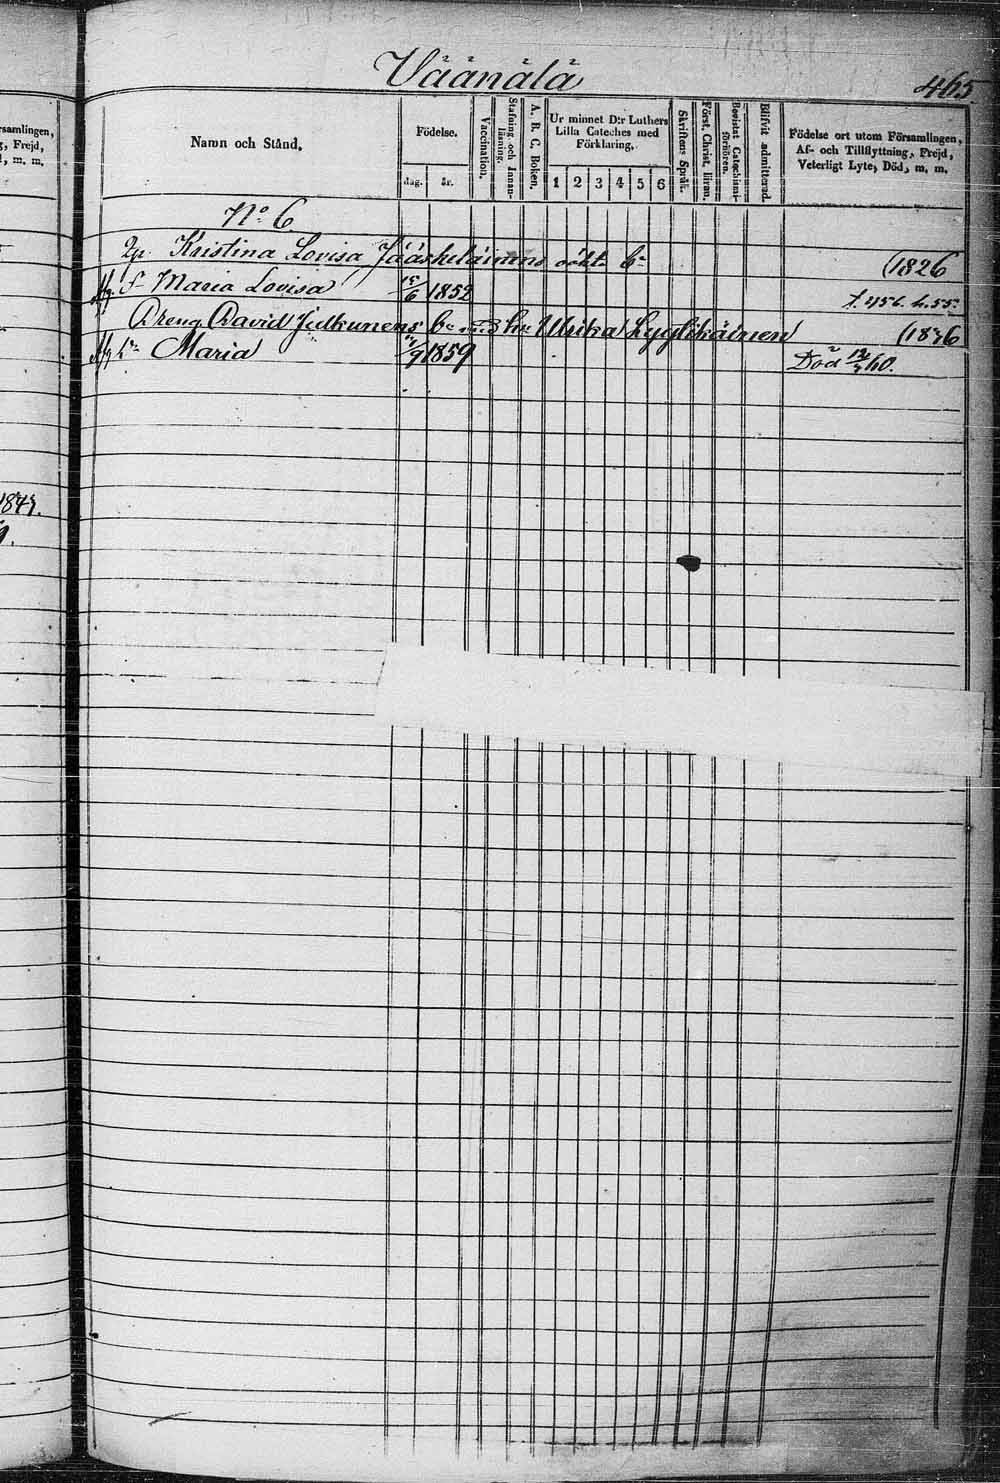 Väänälä
465.
rsamlingen,
g, Frejd,
, m. m.
Namn och Stånd.
Födelse.
dag. år.
Vaccination.
Stafning och Innan-
läsning.
A. B. C. Boken.
Ur minnet D:r Luthers
Lilla Cateches med
Förklaring.
1 2 3 4 5 6
Skriftens Språk.
Först. Christ. läran.
Bevistat Catechismi-
förhören.
Blifvit admitterad.
Födelse ort utom Församlingen,
Af- och Tillflyttning, Frejd,
Veterligt Lyte, Död, m. m.
No 6
Kristina Lovisa Jääskeläinens b. (1826
S. Maria Lovisa 15/6 1852
Dreng David Julkunens b. Ulrika Lyylikäinen (1836
Maria /9 1859 Död 60.
1841.